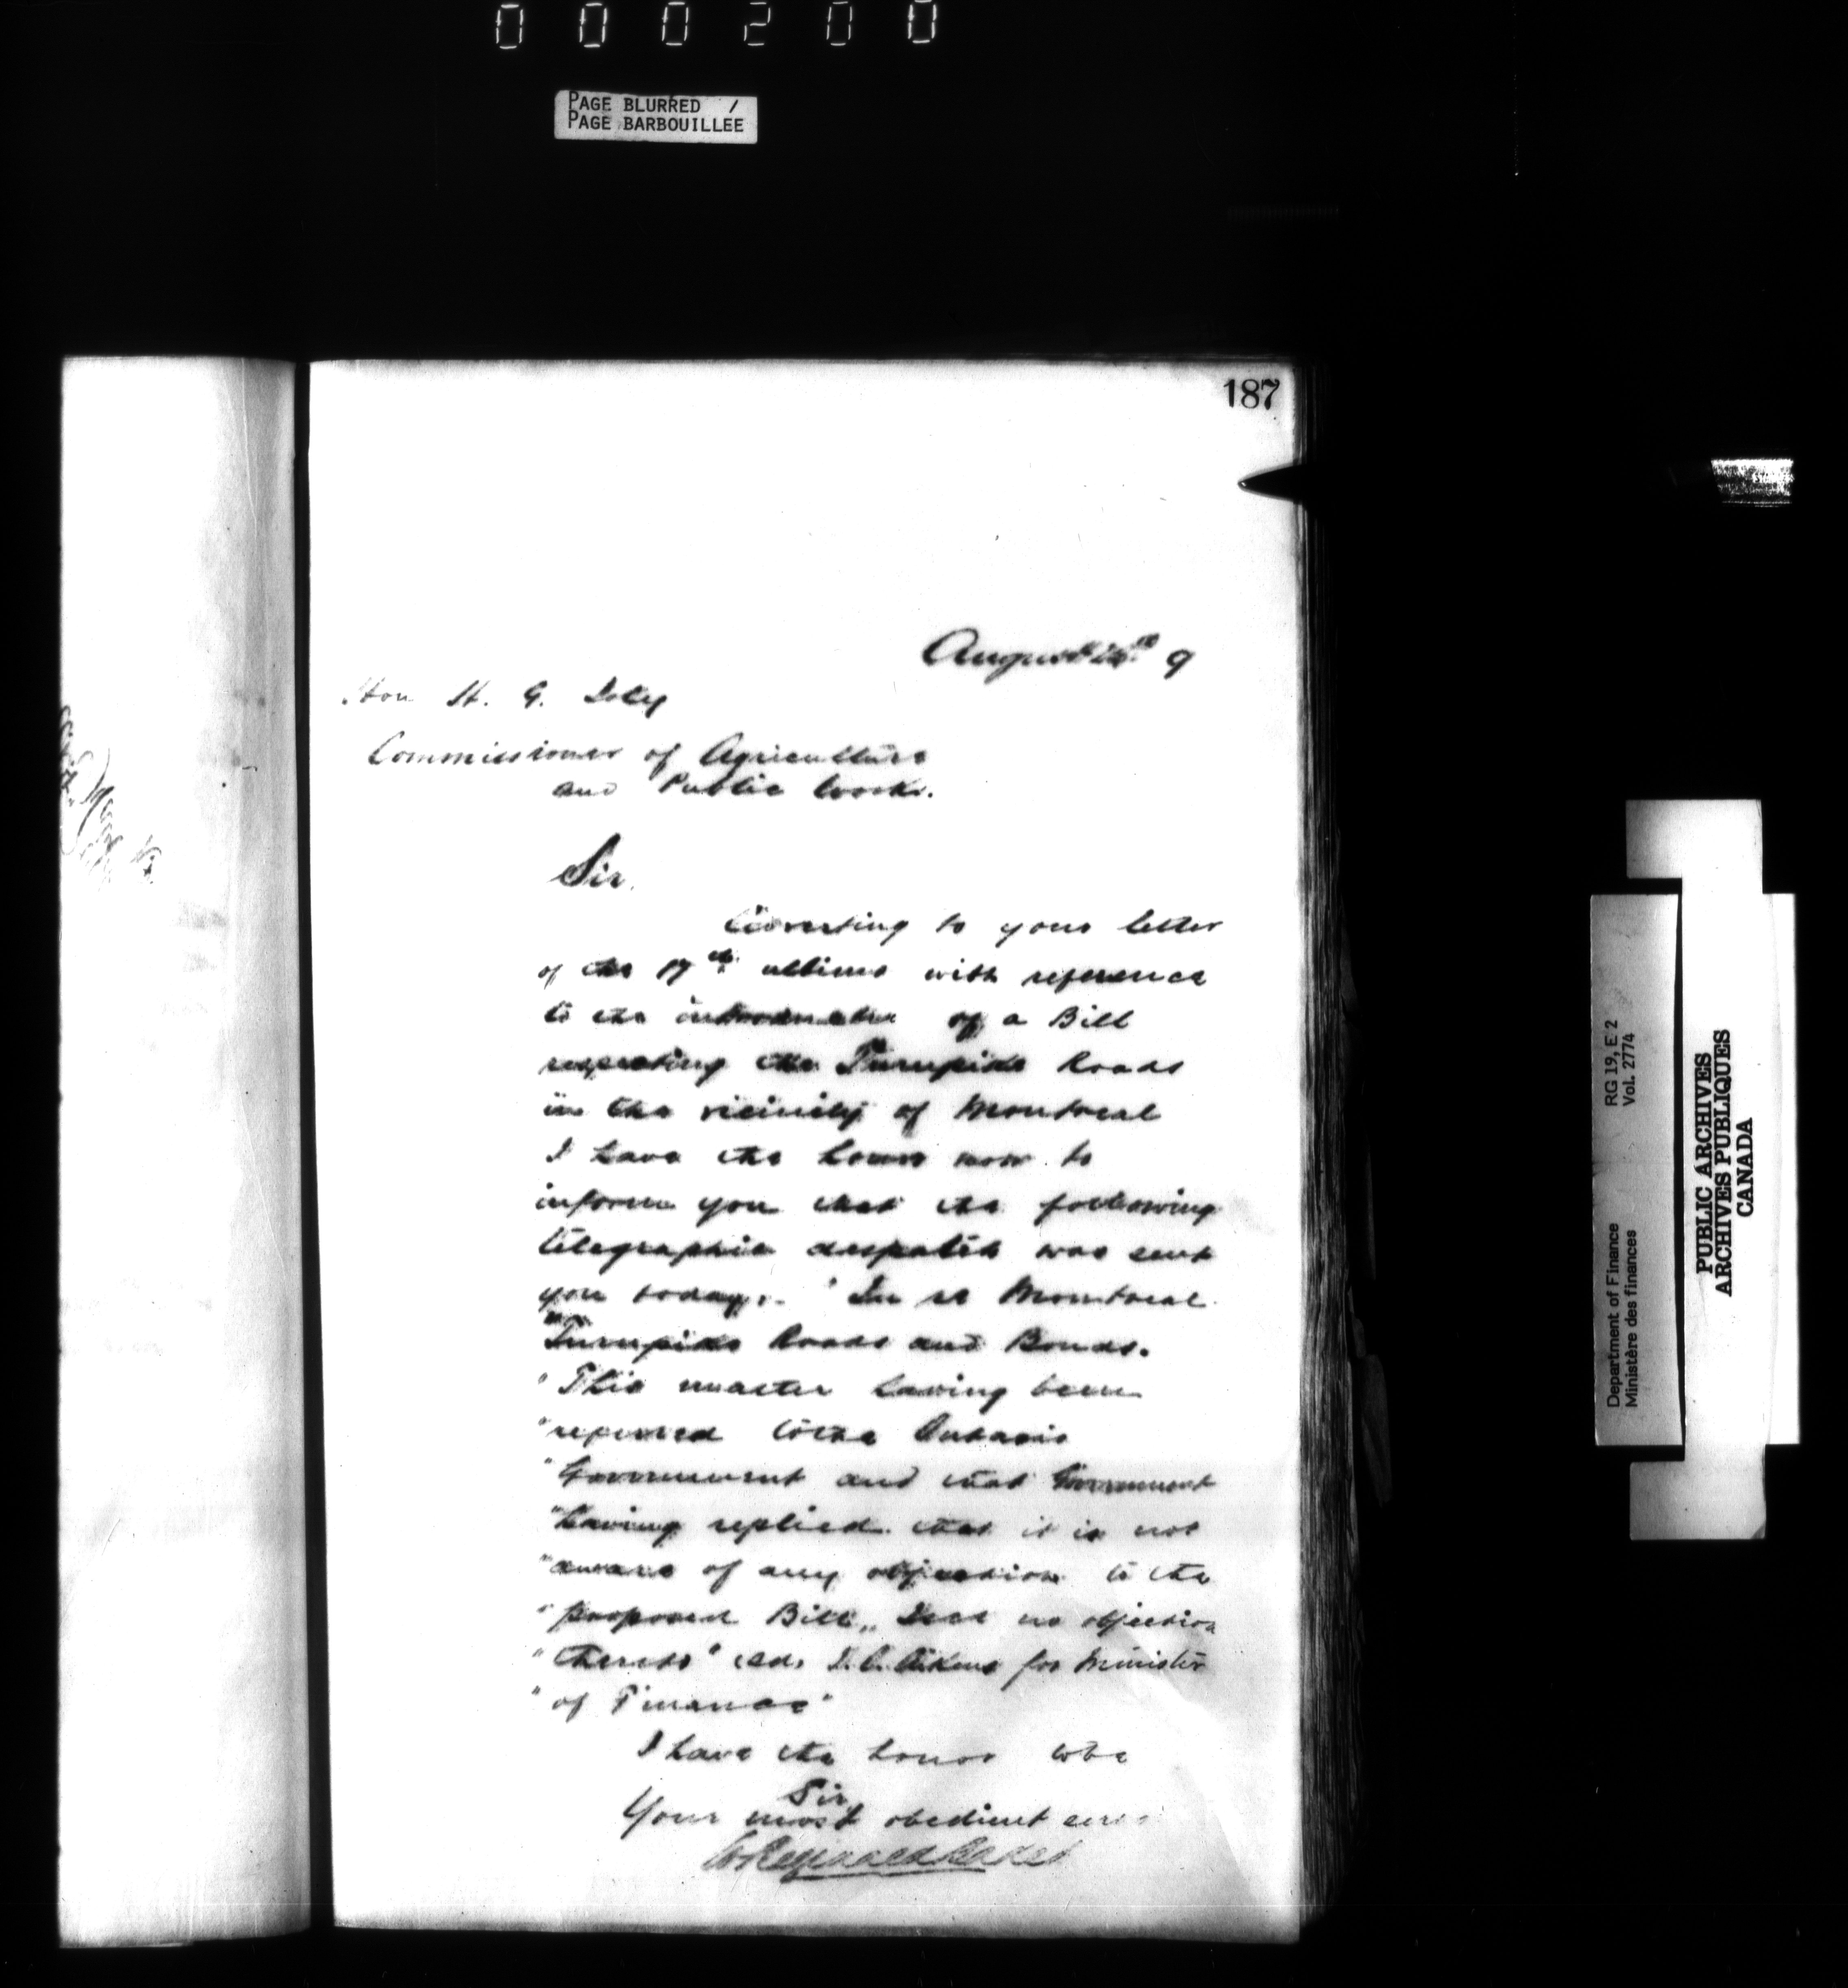 000200
PAGE BLURRED /
PAGE BARBOUILLEE
187
August 9
Hon H. G. Joly
Commissioner of Agriculture
and Public Works.
Sir,
Adverting to your letter
of the 17th ultimo with reference
to the introduction of a Bill
respecting the Turnpike Roads
in the vicinity of Montreal
I have the honor now to
inform you that the following
telegraphic despatch was sent
you today:- "In re Montreal
"Turnpike Roads and Bonds.
"This matter having been
"referred to the Ontario
"Government and that Government
"having replied that it is not
"aware of any objection to the
"proposed Bill, I see no objection
"thereto" J. C. Aikins for Minister
"of Finance"
I have the honor to be
Sir,
Your most obedient
RG 19, E 2
Vol. 2774
Department of Finance
Ministère des finances
PUBLIC ARCHIVES
ARCHIVES PUBLIQUES
CANADA